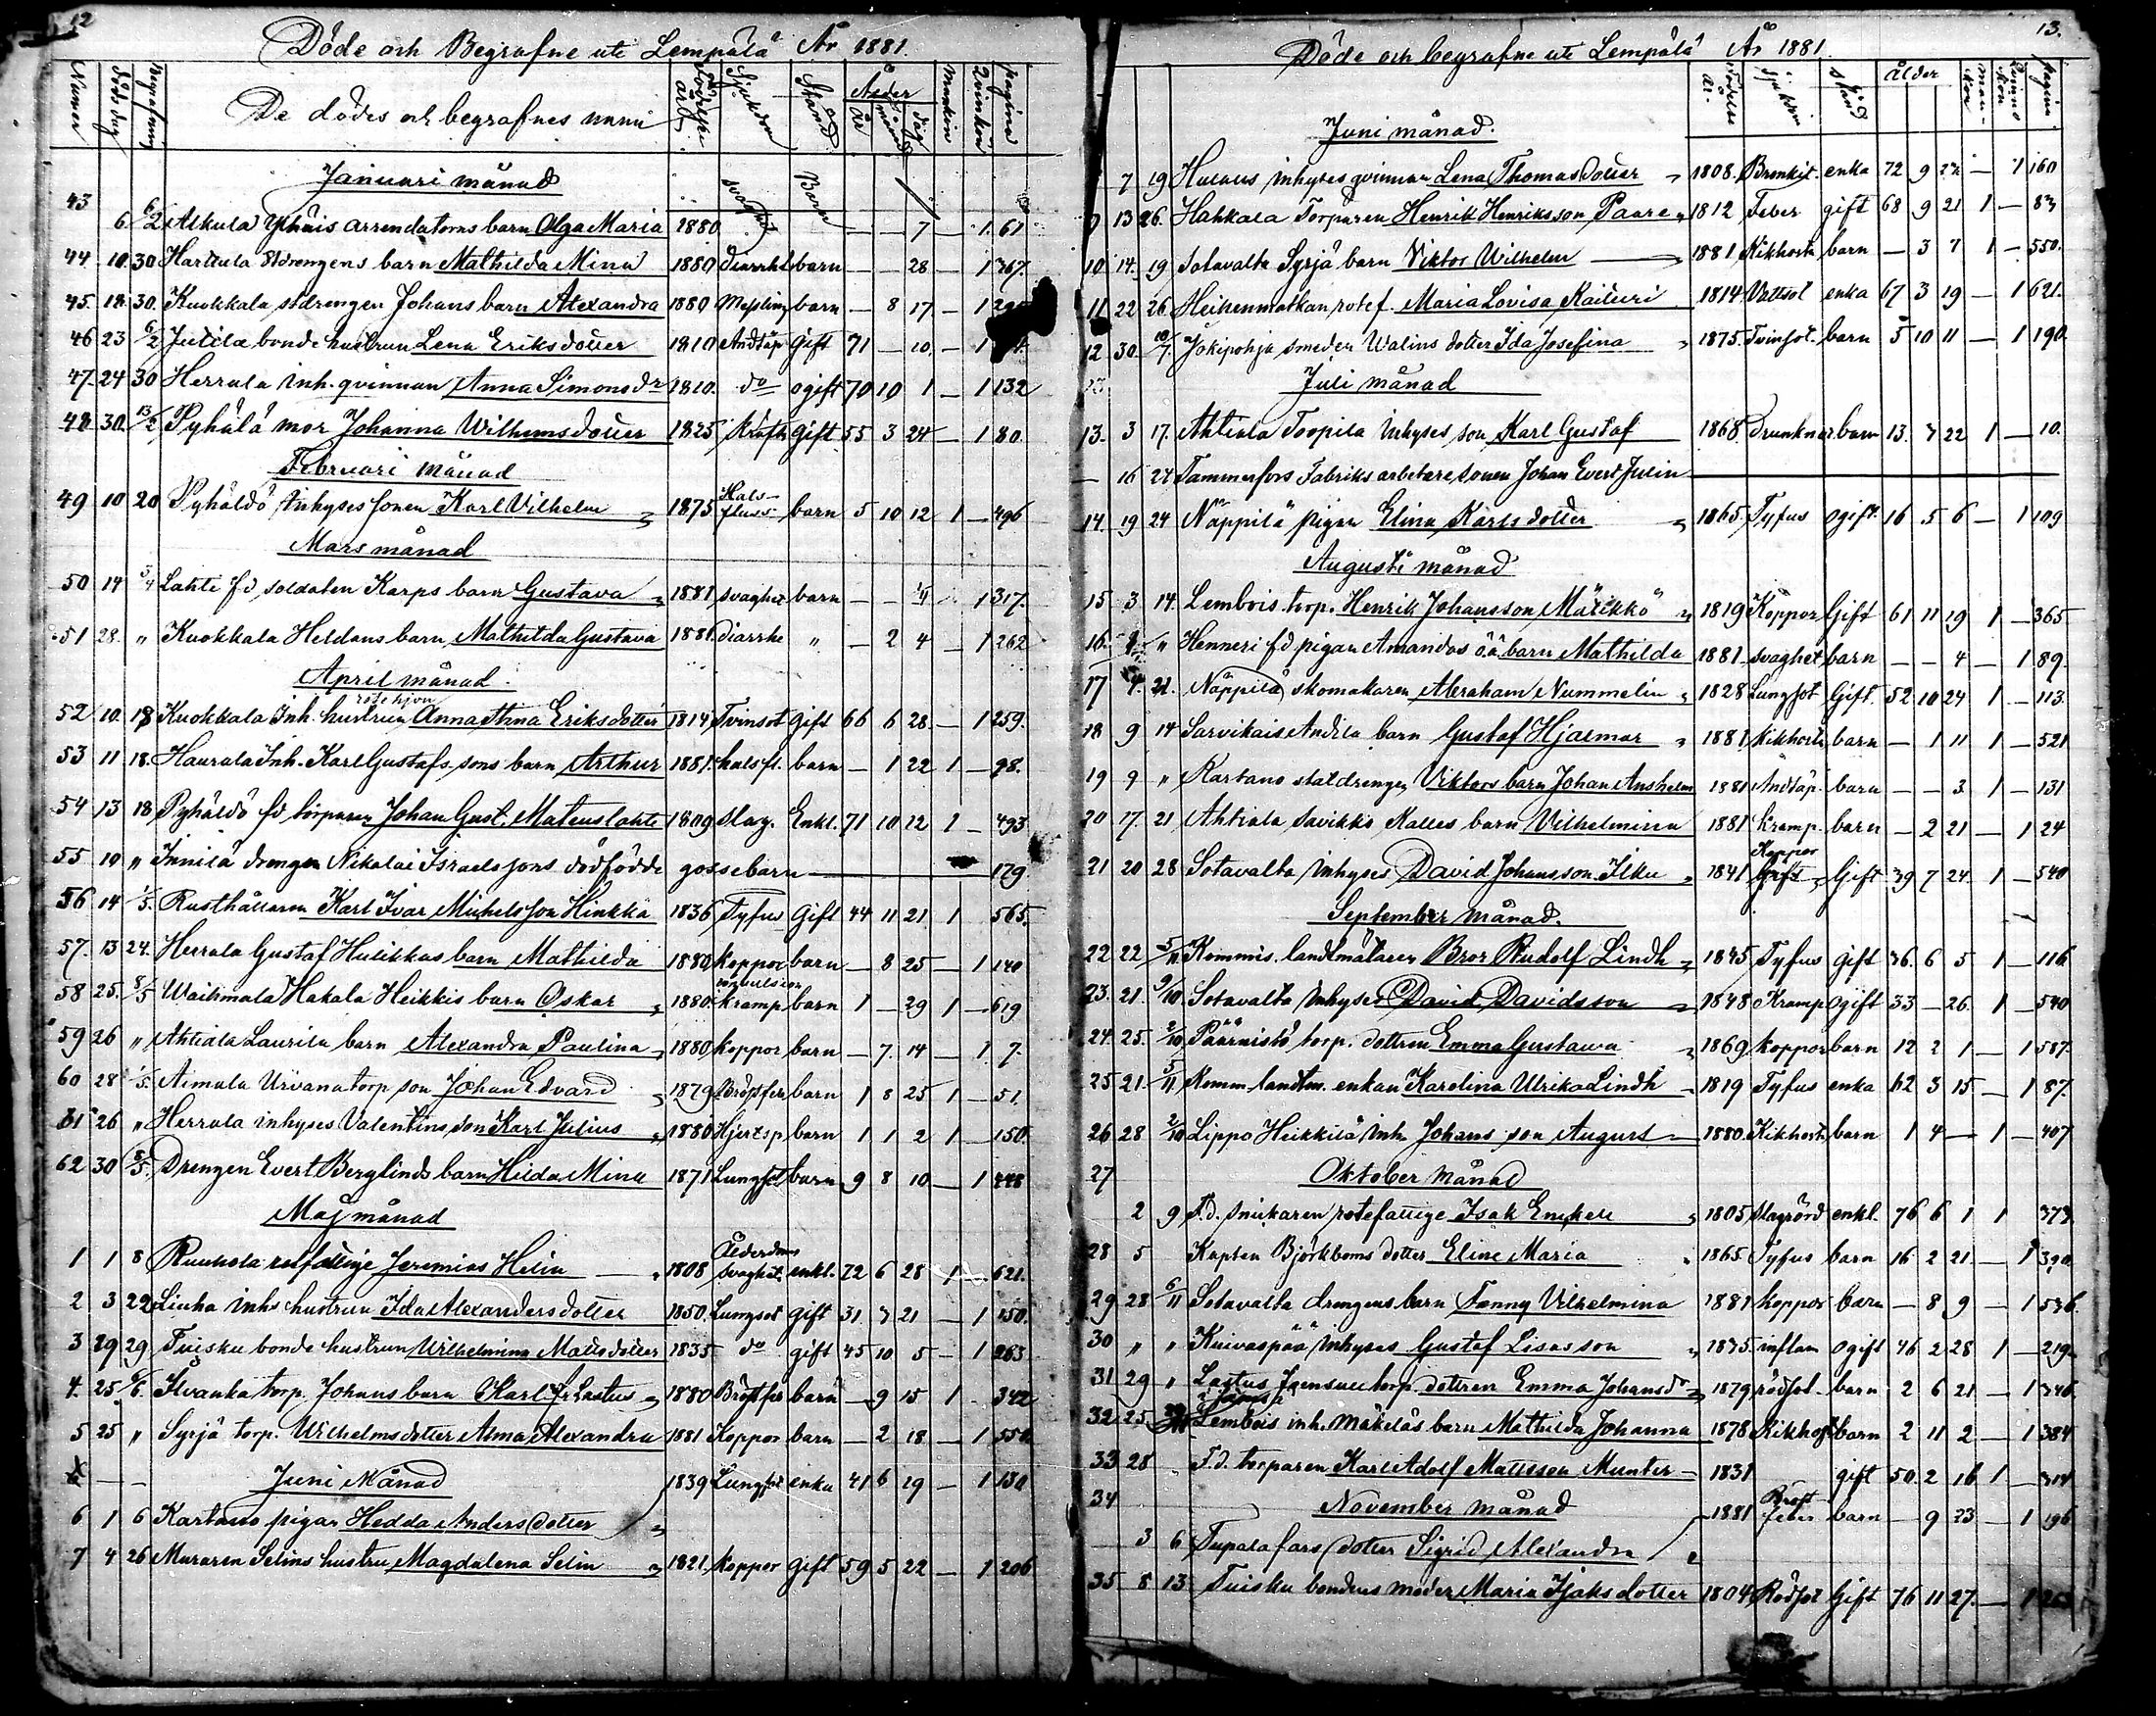 12
Döde och Begrafne uti Lempälä År 1881.
Numer döds dag begrafning De dödes och begrafnes namn födelse årt. Sjukdom Stånd Ålder år månad dag mankön qvinkön pagina
Januari månad
43 6 6/2 Alkula Yphäis arrendatorns barn Olga Maria 1880 svaghet Barn — — 7 — 1 61
44 10 30 Harttula stdrengens barn Mathilda Mina 1880 diarrhé barn — — 28 — 1 367.
45. 18 30. Kuokkala stdrengen Johans barn Alexandra 1880 Messling barn — 8 17 — 1
46 23 6/2 Jutila bonde hustrun Lena Eriksdotter 1810 Andtäp Gift 71 — 10 — 1
47. 24 30 Herrala inh. qvinnan Anna Simonsdr 1810. do ogift 70 10 1 — 1 132
48 30. 13/2 Pyhälä mor Johanna Wilhemsdotter 1825 Kräfta gift 55 3 24 — 1 80.
Februari månad
49 10 20 Pyhäldö Inhyses sonen Karl Vilhelm 1875 Hals-fluss barn 5 10 12 1 — 496
Mars månad
50 14 3/4 Lahti fd soldaten Karps barn Gustava 1881 svaghet barn — — 1 317.
51 28. „ Kuokkala Heldans barn Mathilda Gustava 1881. diarrhe „ — 2 4 — 1 262
April månad.
rotehjon
52 10. 18 Kuokkala Inh. hustrun Anna Stina Eriksdotter 1814 Tvinsot gift 66 6 28 — 1 259.
53 11 18. Haurala Inh. Karl Gustafs sons barn Arthur 1881. halsfl. barn — 1 22 1 — 98.
54 13 18 Pyhäldö fd torparen Johan Gust. Mateuslahti 1809 slag. Enkl. 71 10 22 1 — 493
55 10 „ Innilä drengen Nikolai Israelssons dödfödde gossebarn — 179
56 14 1/5. Rusthållaren Karl Ivar Michelsson Hinkka 1836 Tyfus Gift 44 11 21 1 565.
57. 13 24. Herrala Gustaf Hulikkas barn Mathilda 1880 koppor barn — 8 25 — 1 140
58 25. 8/5 Waihmala Hakala Heikkis barn Oskar 1880. kramp barn 1 — 29 1 — 619
59 26 „ Ahtiala Laurila barn Alexandra Paulina 1880 koppor barn — 7. 14 — 1 7.
60 28 1/5. Aimala Urvana torp son Johan Edvard 1879 Bröstfeb barn 1 8 25 1 — 51.
61 26 „ Herrala inhyses Valentins son Karl Julius 1880 Hjertsp barn 1 1 2 1 — 150.
62 30 8/5. Drengen Evert Berglinds barn Hilda Mina 1871 Lungsot barn 9 8 10 — 1 448
Maj månad
1 1 8 Ruuhola rotfattige Jeremias Helin 1808 Ålderdoms svaghet enkl. 72 6 28 1 — 621.
2 3 22 Liuha inhs hustrun Ida Alexandersdotter 1850. Lungsot gift 31 3 21 — 1 150.
3 29 29 Tuisku bonde hustrun Wilhelmina Matsdotter 1835 do gift 45 10 5 — 1 263
4. 25 6/6. Ilvanka torp. Johans barn Karl fr Lastus 1880 Bröstfeb barn — 9 15 1 342
5 25 „ Syrjä torp. Wilhelmsdotter Alma Alexandra 1881 Koppor barn — 2 18 — 1 550.
Juni Månad 1839 Lungsot enka 41 6 29 — 1 130
6 1 6 Kartano pigan Hedda Andersdotter
7 4 26 Muraren Selins hustru Magdalena Selin 1821. koppor gift 59 5 22 — 1 206
13.
Döde och begrafne uti Lempälä År 1881
födelse år. sjukdom stånd ålder man-kön Quinnokön Pagina
Juni månad.
7 19 Hulaus Inhyses qvinnan Lena Thomasdotter 1808. Bronkit. enka 72 9 27 — 1 160
9 13 26. Hahkala Torparen Henrik Henriksson Paare 1812 Feber gift 68 9 21 1 — 83
10 14. 19 Sotavalta Syrjä barn Viktor Wilhelm 1881 Kikhosta barn — 3 7 1 — 550.
11 22 26. Heikenmatkan rotef. Maria Lovisa Kaituri 1814 Vattsot enka 67 3 19 — 1 621.
12 30. 10/7. Jokipohja smeden Walins dotter Ida Josefina 1875. Tvinsot. barn 5 10 11 — 1 190.
Juli månad
13. 3 17. Ahtiala Torpila inhyses son Karl Gustaf 1868 Drunknar barn 13. 7 22 1 — 10.
— 16 24 Tammerfors Fabriks arbetare sonen Johan Evert Julin
14. 19 24 Näppilä pigan Elina Karlsdotter 1865 Tyfus ogift 16 5 6 — 1 109
Augusti månad
15 3 14. Lembois torp. Henrik Johansson Märkkö 1819 Koppor Gift 61 11 19 1 — 365
16. „ Henneri fd pigan Amandas oä barn Mathilda 1881. svaghet barn — — 4 — 1 89.
17 4. 21. Näppilä skomakaren Abraham Nummelin 1828 Lungsot Gift. 52 10 24 1 — 113.
18 9 14 Sarvikais Andila barn Gustaf Hjalmar 1881 kikhosta barn — 1 11 1 — 521
19 9 „ Kartano statdrengen Viktors barn Johan Anshelm 1881 Andtäp barn — — 3 1 — 131
20 17. 21 Ahtiala Savikko Kalles barn Vilhelmina 1881 kramp. barn — 2 21 — 1 24
21 20 28 Sotavalta Inhyses David Johansson Ilku 1841 Koppor Gift 39 7 24. 1 — 540
September månad.
22 22 5/11 Kommis. landtmätaren Bror Rudolf Lindh 1845 Tyfus gift 36. 6 5 1 — 116
23. 21. 9/10. Sotavalta Inhyses David Davidsson 1848 Kramp Ogift 33 — 26. 1 — 540
24. 25. 2/10 Päärnistö torp. dottren Emma Gustawa 1869 koppor barn 12 2 1 — 1 587.
25 21. 5/11 Komm. landtm. enkan Karolina Ulrika Lindh 1819 Tyfus enka 62 3 15 — 1 87.
26 28 2/10 Lippo Heikkilä inh. Johans son August 1880. Kikhosta barn 1 4 — 1 — 407
27 Oktober månad
2 9 F.d. snickaren rotefattige Isak Enckell 1805 slagrörd enkl. 76 6 1 1 373
28 5 Kapten Björkboms dotter Eline Maria 1865 Tyfus barn 16 2 21 — 1 390
29 28 6/11 Sotavalta drengens barn Fanny Vilhelmina 1881 koppor barn — 8 9 — 1 536.
30 „ „ Kuivaspää Inhyses Gustaf Lisas son 1835. inflam ogift 46 2 28 1 — 219.
31 29 „ Lastus Joensuu torp. dottren Emma Johansdr 1879 rödsot barn 2 6 21 — 1 346
32 25 Lembois inh. Mäkeläs barn Mathilda Johanna 1878 Kikhost barn 2 11 2 — 1 384
33 28 F.d. torparen Karl Adolf Mattsson Munter 1831 gift 50. 2 16 1 — 314
34 November månad 1881 Bröst feber barn — 9 23 — 1 196
3 6 Tupala fars dotter Sigrid Alexandra
35 8 13 Tuisku bondens moder Maria Isaksdotter 1804 Rödsot Gift 76 11 27. — 1 263